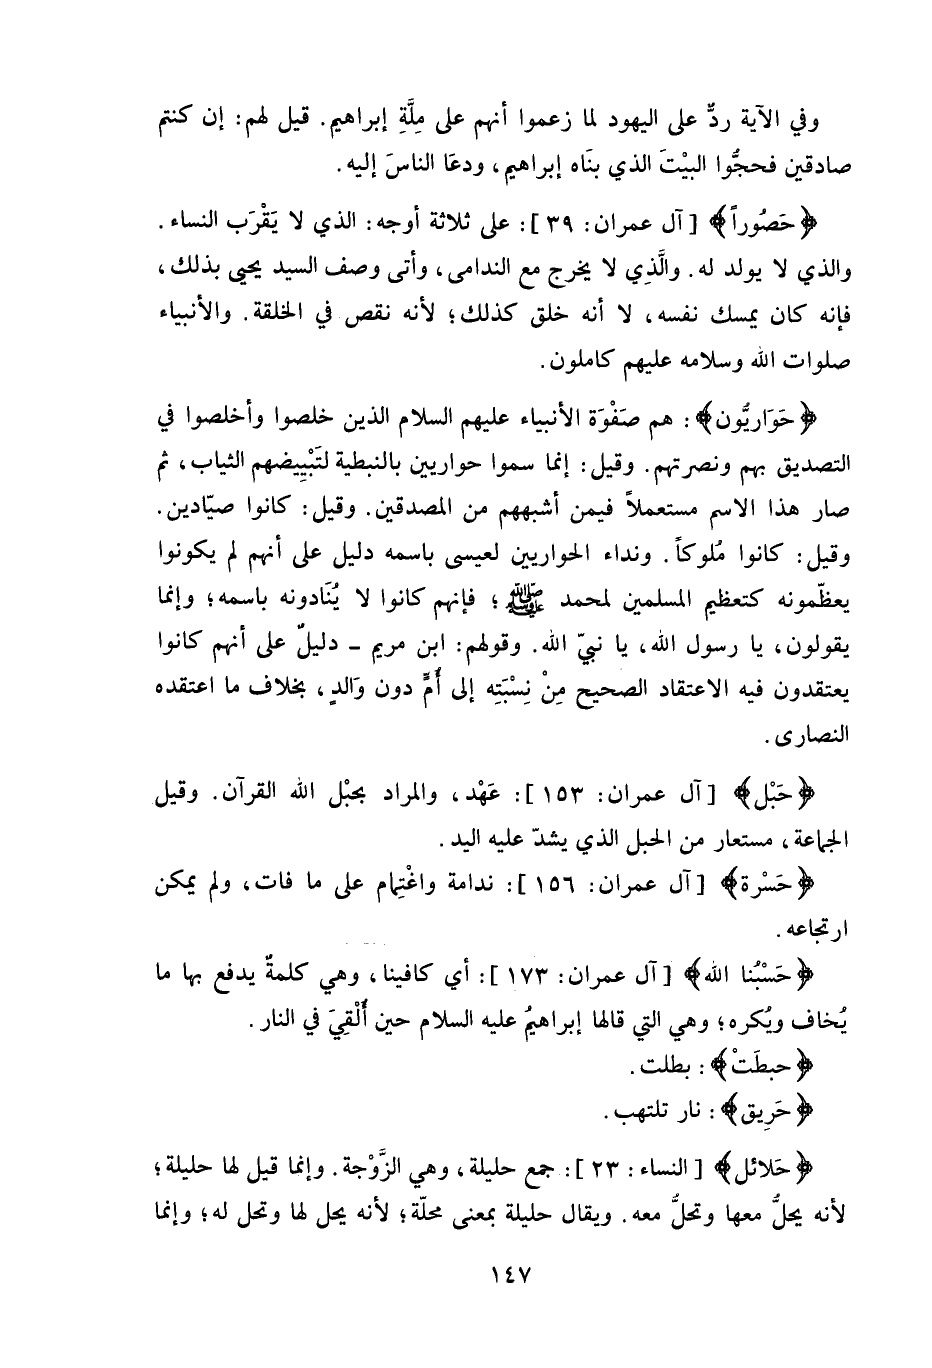 وفي الآية ردٌّ على اليهود لما زعموا أنهم على مِلَّةِ إبراهيم. قيل لهم: إن كنتم
صادقين فحجُّوا البيْتَ الذي بنَاه إبراهيم، ودعَا الناسَ إليه.
﴿حَصُوراً﴾ [آل عمران: ٣٩]: على ثلاثة أوجه: الذي لا يَقْرَب النساء.
والذي لا يولد له. والَّذِي لا يخرج مع الندامى، وأتى وصف السيد يحيى بذلك،
فإنه كان يمسك نفسه، لا أنه خلق كذلك؛ لأنه نقص في الخلقة. والأنبياء
صلوات الله وسلامه عليهم كاملون.
﴿حَوَاريُّون﴾: هم صَفْوَة الأنبياء عليهم السلام الذين خلصوا وأخلصوا في
التصديق بهم ونصرتهم. وقيل: إنما سموا حواريين بالنبطية لتَبْيِيضهم الثياب، ثم
صار هذا الاسم مستعملاً فيمن أشبههم من المصدقين. وقيل: كانوا صيّادين.
وقيل: كانوا مُلوكاً. ونداء الحواريين لعيسى باسمه دليل على أنهم لم يكونوا
يعظّمونه كتعظيم المسلمين لمحمد ﷺ؛ فإنهم كانوا لا يُنَادونه باسمه؛ وإنما
يقولون، يا رسول الله، يا نبيّ الله. وقولهم: ابن مريم - دليلٌ على أنهم كانوا
يعتقدون فيه الاعتقاد الصحيح مِنْ نِسْبَتِه إلى أُمٍّ دون وَالدٍ، بخلاف ما اعتقده
النصارى.
﴿حَبْل﴾ [آل عمران: ١٥٣]: عَهْد، والمراد بحبْل الله القرآن. وقيل
الجماعة، مستعار من الحبل الذي يشدّ عليه اليد.
﴿حَسْرة﴾ [آل عمران: ١٥٦]: ندامة واغْتِمام على ما فات، ولم يمكن
ارتجاعه.
﴿حَسْبُنا الله﴾ [آل عمران: ١٧٣]: أي كافينا، وهي كلمةٌ يدفع بها ما
يُخاف ويُكره؛ وهي التي قالها إبراهيمُ عليه السلام حين أُلْقِيَ في النار.
﴿حبطَتْ﴾: بطلت.
﴿حَرِيق﴾: نار تلتهب.
﴿حَلائل﴾ [النساء: ٢٣]: جمع حليلة، وهي الزَّوْجة. وإنما قيل لها حليلة؛
لأنه يحلُّ معها وتحلُّ معه. ويقال حليلة بمعنى محلّة؛ لأنه يحل لها وتحل له؛ وإنما
١٤٧